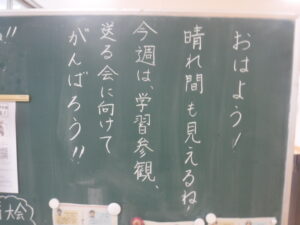 おはよう！
晴れ間も見えるね。
今週は、学習参観、
送る会に向けて
がんばろう!!
大会